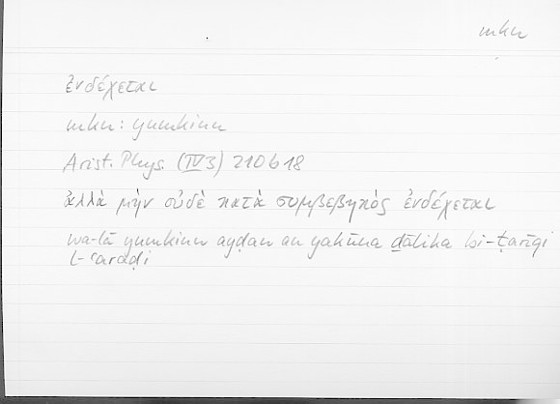 mkn
ἐνδέχεται
mkn: yumkinu
Arist. Phys. (IV3) 210b18
ἀλλὰ μὴν οὐδὲ κατὰ συμβεβηκὸς ἐνδέχεται
wa-lā yumkinu ayḍan an yakūna ḏālika bi-ṭarīqi
l-ʿaraḍi